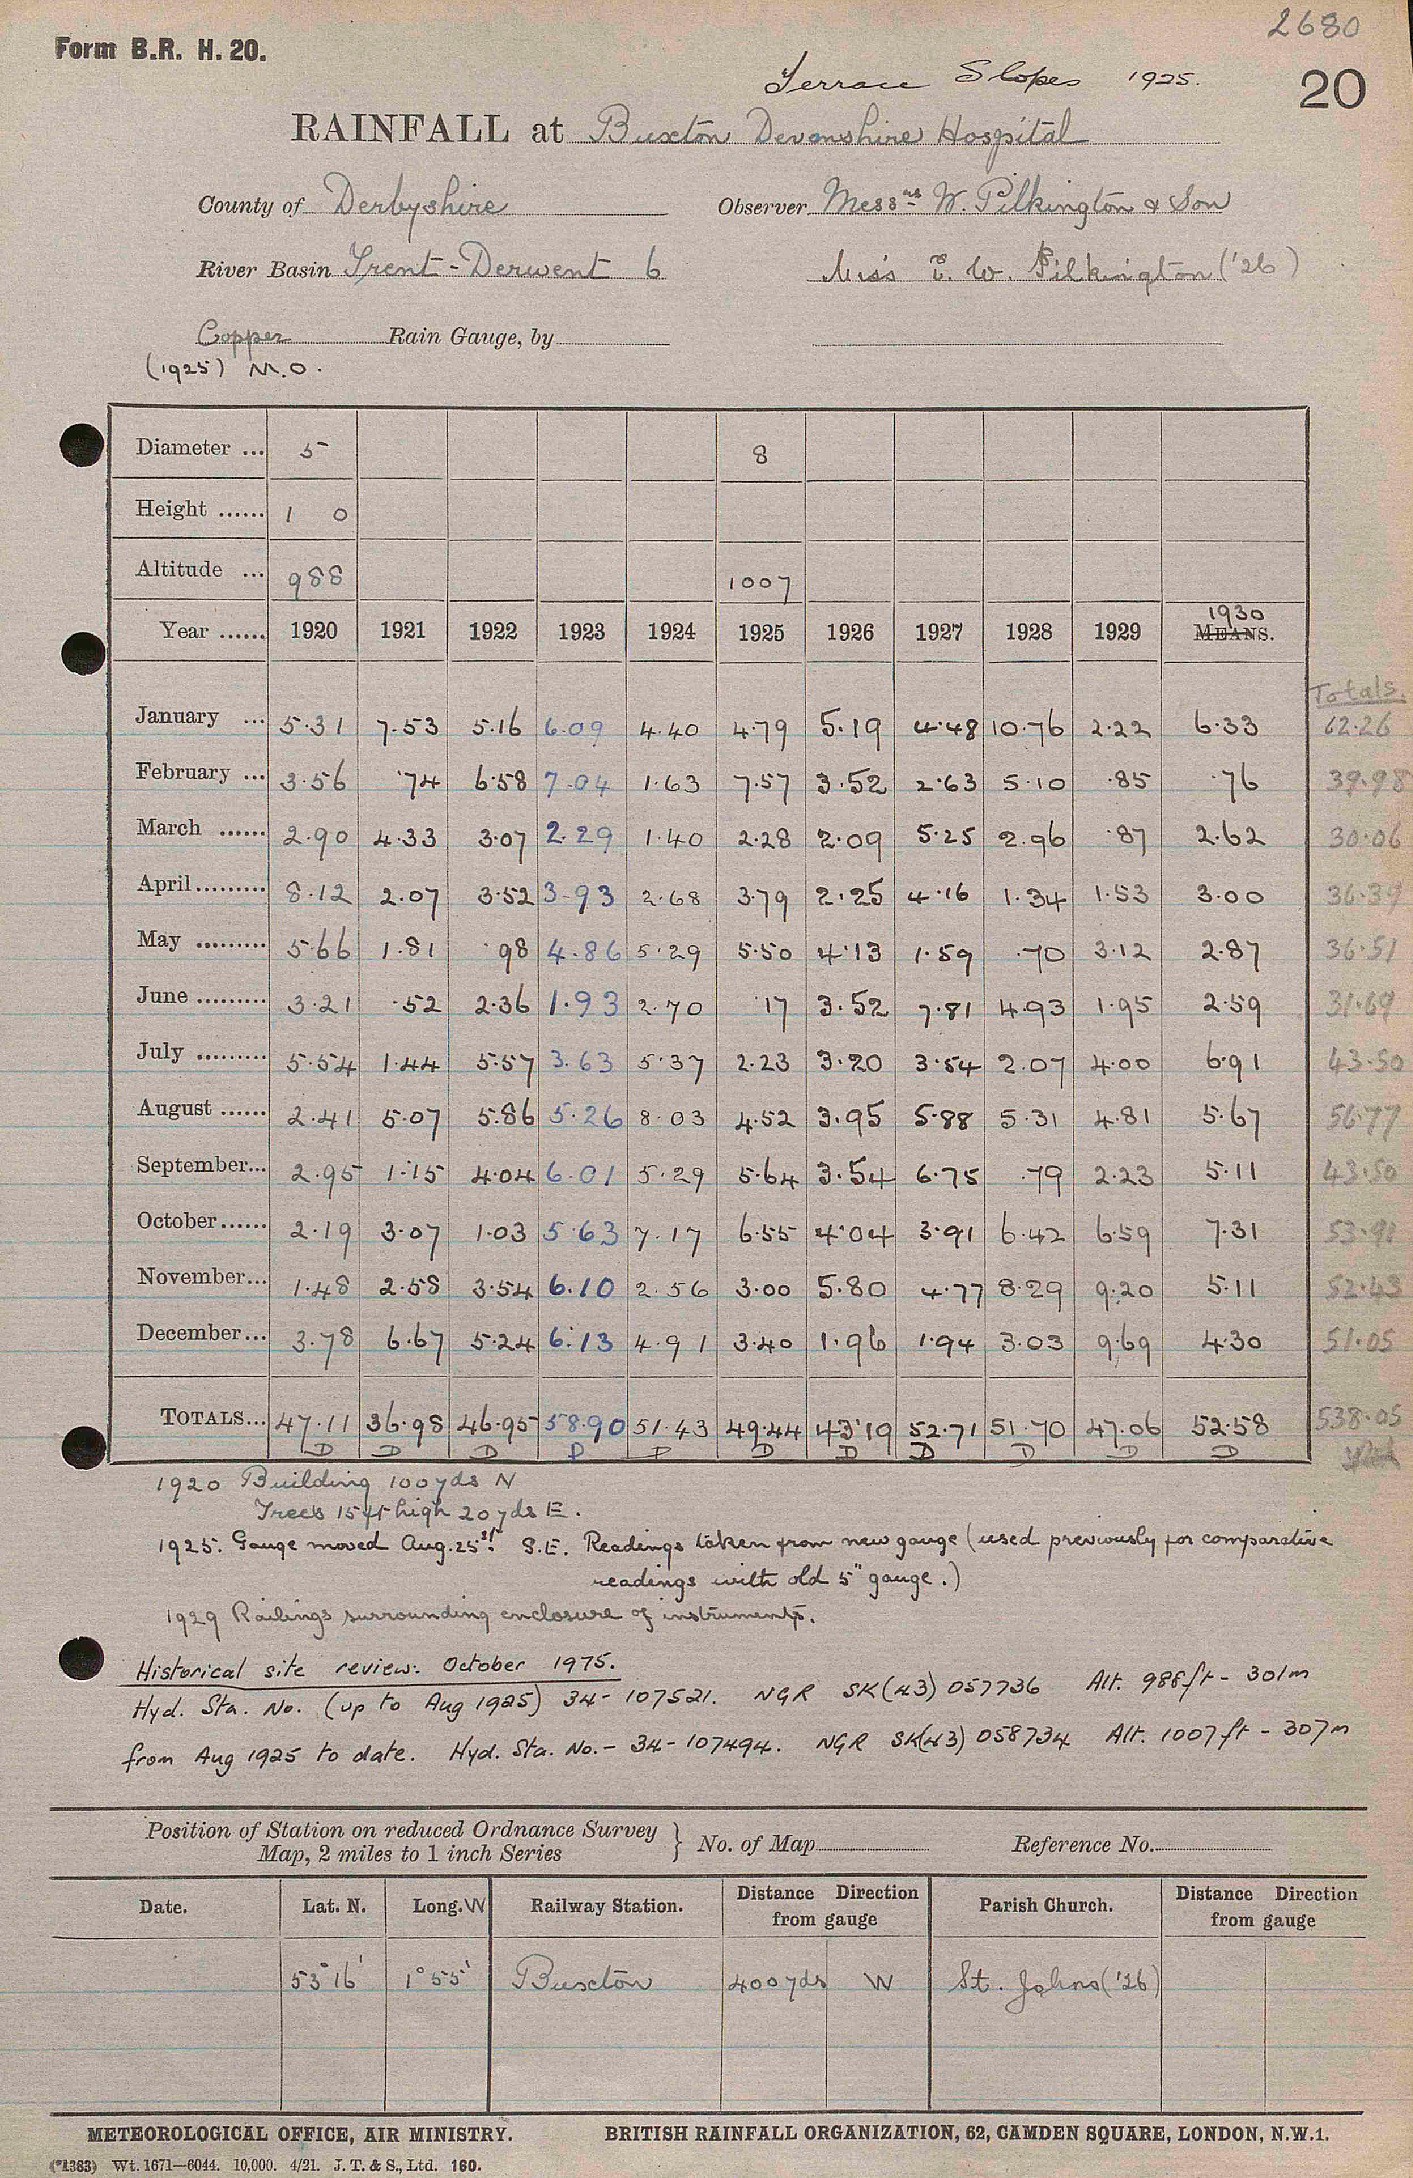 2680
Form B.R. H. 20.
Terrace Slopes 1925.
20
RAINFALL at Buxton Devonshire Hospital
County of Derbyshire Observer Messrs W. Pilkington & Son
River Basin Trent - Derwent 6 Miss E. W. Pilkington ('26)
Copper Rain Gauge, by
(1925) M.O.
Diameter ... 5 8
Height ...... 1 0
Altitude ... 988 1007
1930
Year ...... 1920 1921 1922 1923 1924 1925 1926 1927 1928 1929 MEANS.
Totals.
January ... 5.31 7.53 5.16 6.09 4.40 4.79 5.19 4.48 10.76 2.22 6.33 62.26
February ... 3.56 .74 6.58 7.04 1.63 7.57 3.52 2.63 5.10 .85 .76 39.98
March ...... 2.90 4.33 3.07 2.29 1.40 2.28 2.09 5.25 2.96 .87 2.62 30.06
April......... 8.12 2.07 3.52 3.93 2.68 3.79 2.25 4.16 1.34 1.53 3.00 36.39
May ......... 5.66 1.81 .98 4.86 5.29 5.50 4.13 1.59 .70 3.12 2.87 36.51
June ......... 3.21 .52 2.36 1.93 2.70 .17 3.52 7.81 4.93 1.95 2.59 31.69
July ......... 5.54 1.44 5.57 3.63 5.37 2.23 3.20 3.54 2.07 4.00 6.91 43.50
August ...... 2.41 5.07 5.86 5.26 8.03 4.52 3.95 5.88 5.31 4.81 5.67 56.77
September... 2.95 1.15 4.04 6.01 5.29 5.64 3.54 6.75 .79 2.23 5.11 43.50
October...... 2.19 3.07 1.03 5.63 7.17 6.55 4.04 3.91 6.42 6.59 7.31 53.91
November... 1.48 2.58 3.54 6.10 2.56 3.00 5.80 4.77 8.29 9.20 5.11 52.43
December... 3.78 6.67 5.24 6.13 4.91 3.40 1.96 1.94 3.03 9.69 4.30 51.05
TOTALS... 47.11 36.98 46.95 58.90 51.43 49.44 43.19 52.71 51.70 47.06 52.58 538.05
D D D P P D D D D D D
1920 Building 100 yds N
Trees 15 ft high 20 yds E.
1925. Gauge moved Aug. 25st. S.E. Readings taken from new gauge (used previously for comparative
readings with old 5" gauge.)
1929 Railings surrounding enclosure of instruments.
Historical site review: October 1975.
Hyd. Sta. No. (up to Aug 1925) 34-107521. NGR SK(43) 057736 Alt. 988ft - 301m
from Aug 1925 to date. Hyd. Sta. No. - 34-107494. NGR SK(43) 058734 Alt. 1007ft - 307m
Position of Station on reduced Ordnance Survey
Map, 2 miles to 1 inch Series } No. of Map Reference No.
Date. Lat. N. Long. W Railway Station. Distance Direction from gauge Parish Church. Distance Direction from gauge
53°16' 1°55' Buxton 400 yds W St. Johns ('26)
METEOROLOGICAL OFFICE, AIR MINISTRY. BRITISH RAINFALL ORGANIZATION, 62, CAMDEN SQUARE, LONDON, N.W.1.
(*1383) Wt. 1671—6044. 10,000. 4/21. J. T. & S., Ltd. 160.